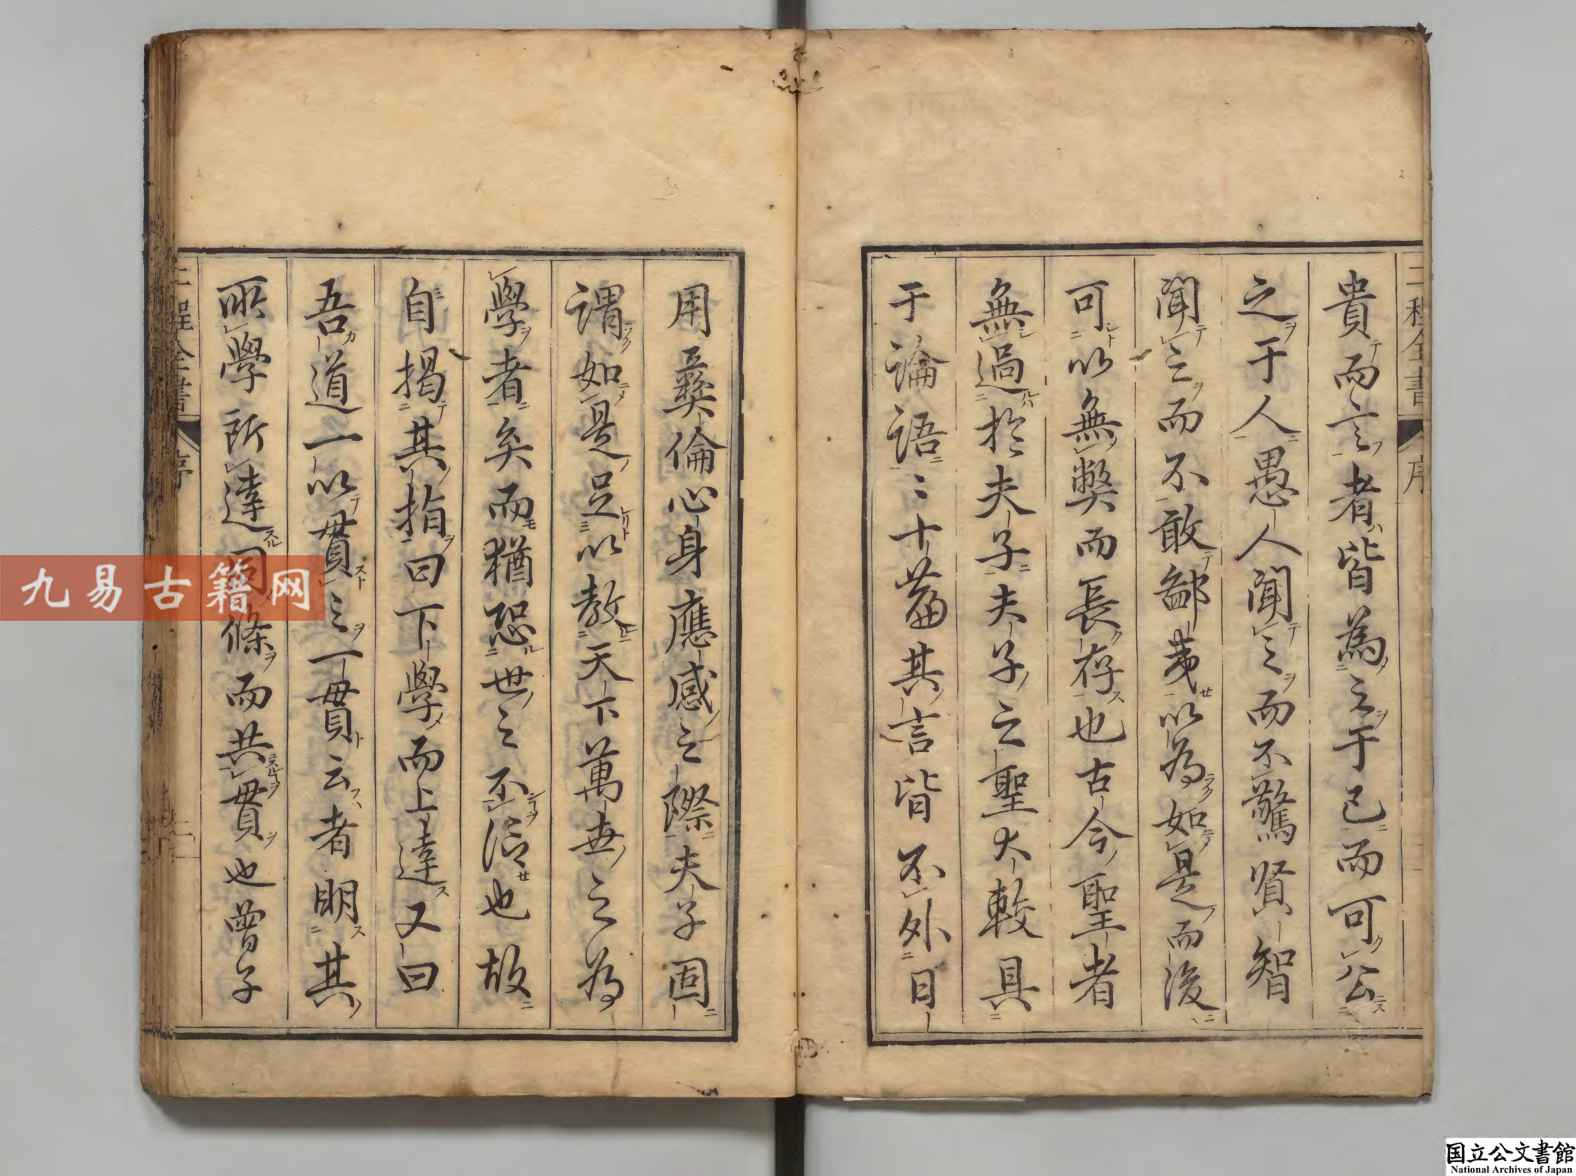 二程全書 序
貴而言者皆為之于己而可公
之于人愚人聞之而不驚賢智
聞之而不敢鄙夷以為如是而後
可以無弊而長存也古今聖者
無過於夫子夫子之言聖大較具
于論語二十篇其言皆不外日
用彝倫心身應感之際夫子固
謂如是足以教天下萬世之為
學者矣而猶恐世之不信也故
自揭其指曰下學而上達又曰
吾道一以貫之一貫云者明其
所學所達同條而共貫也曾子
二程全書 序 二
九易古籍网
国立公文書館
National Archives of Japan